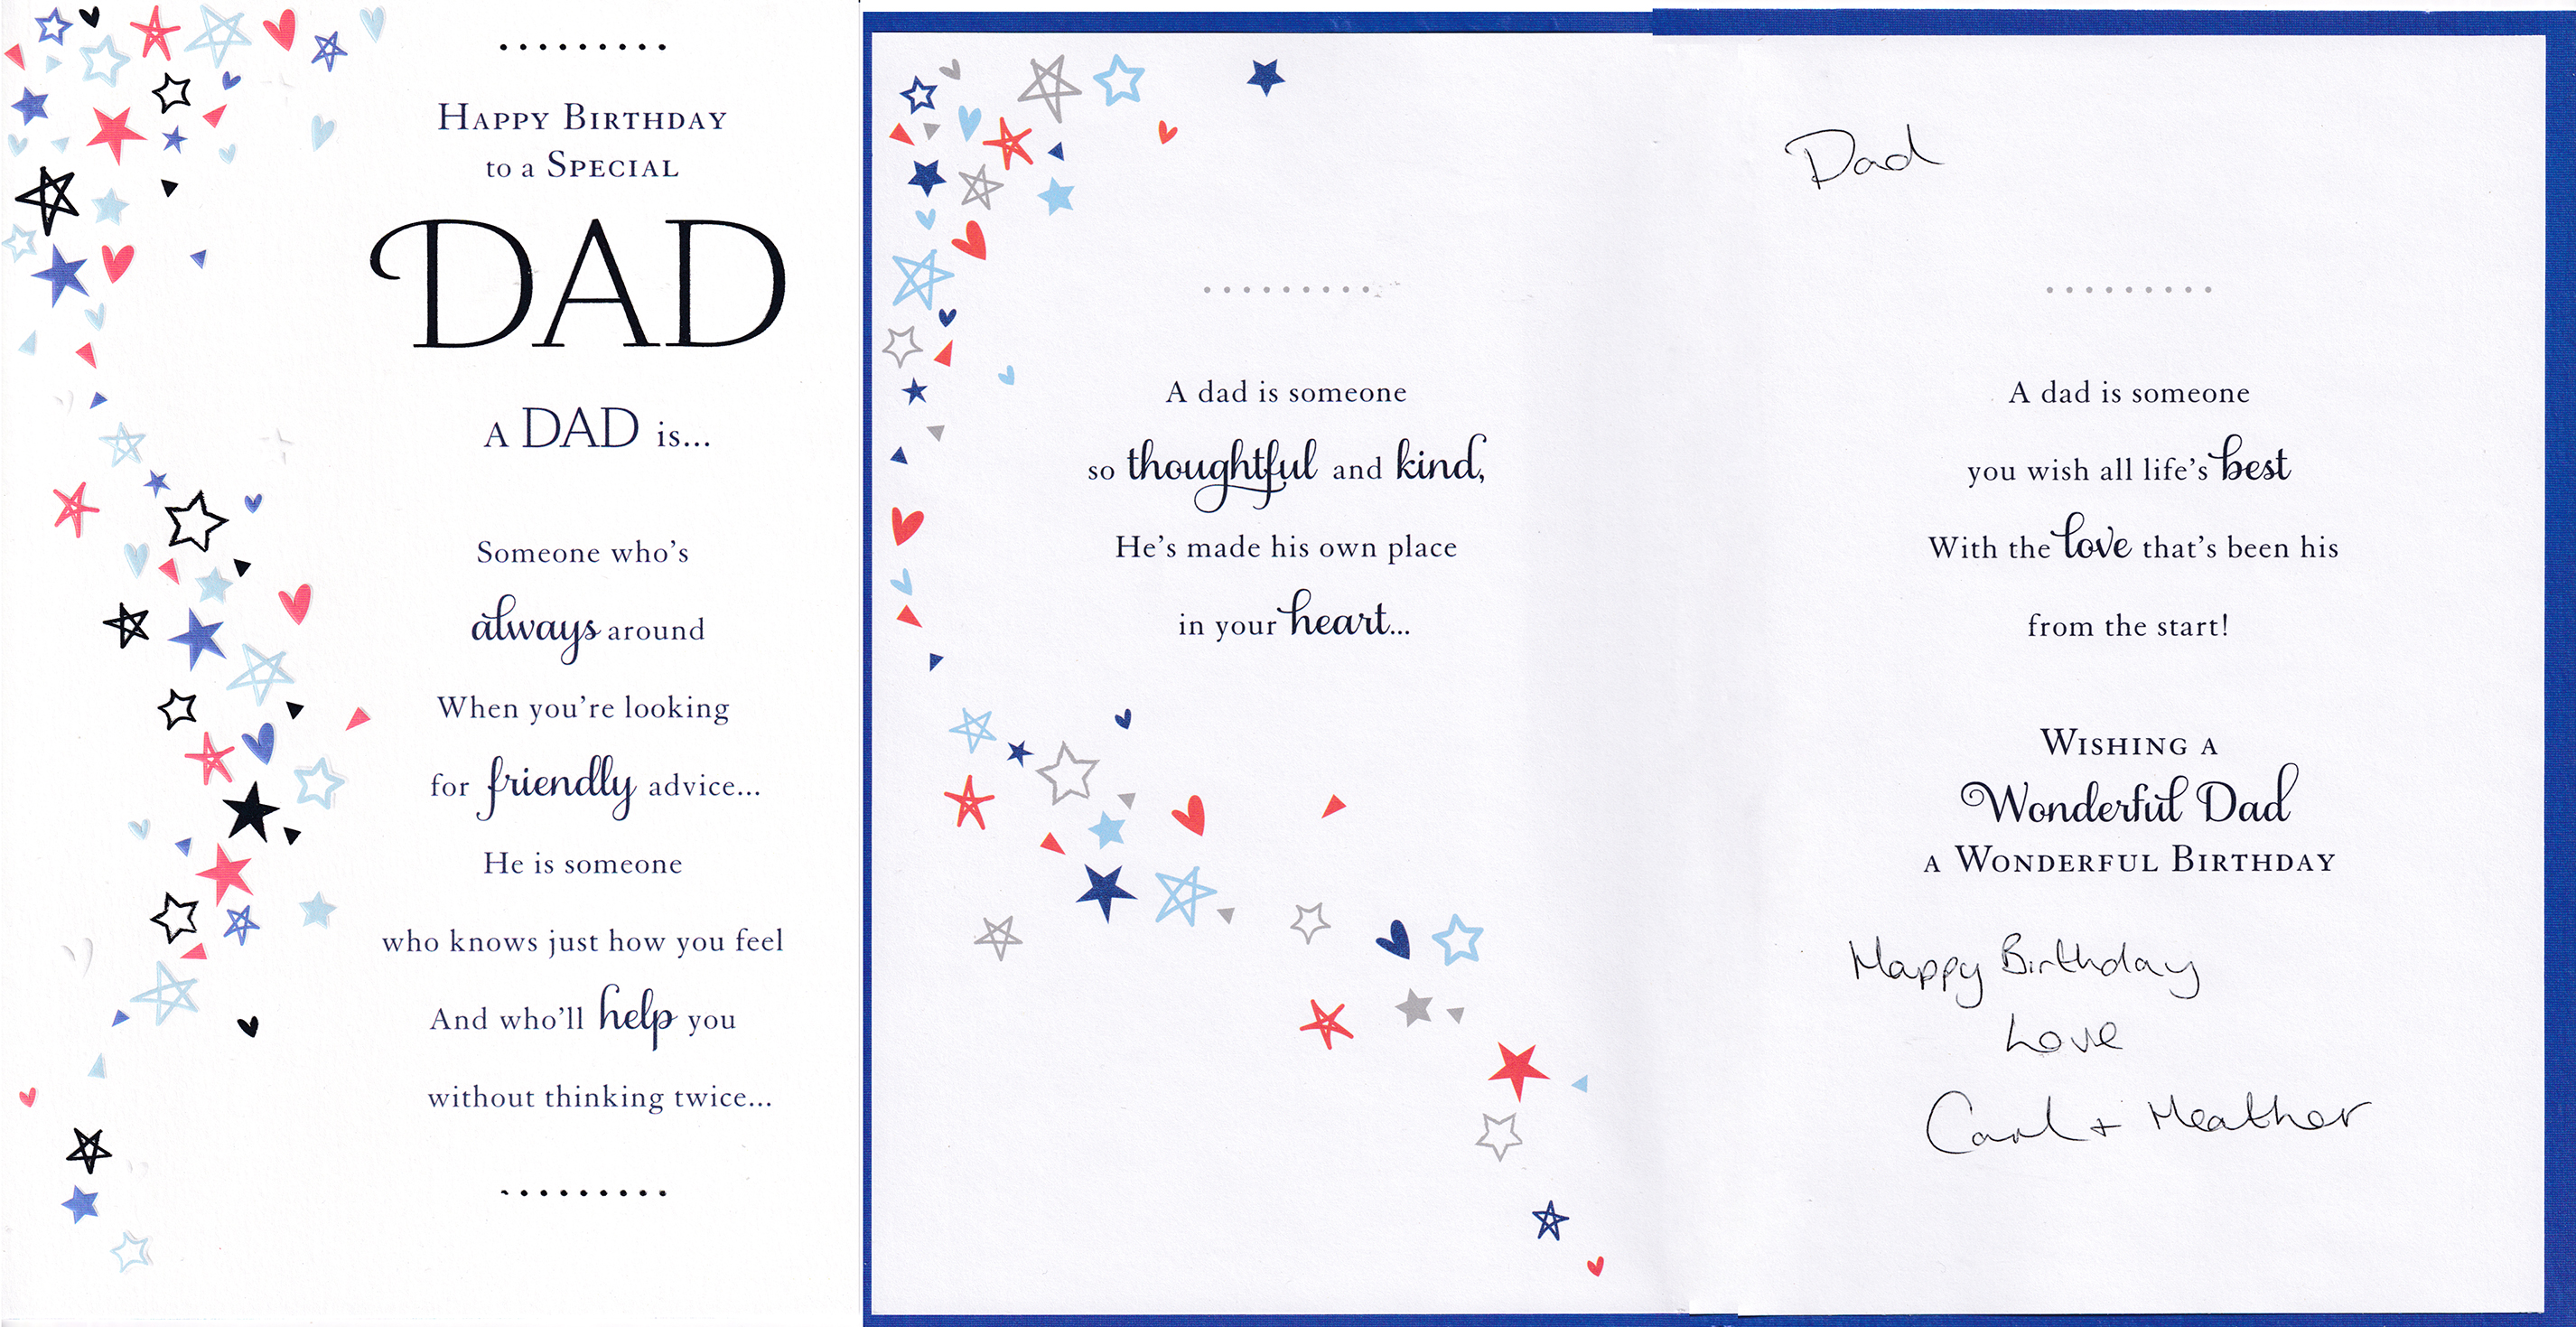 Happy Birthday
to a Special
DAD
A DAD is...
Someone who's
always around
When you're looking
for friendly advice...
He is someone
who knows just how you feel
And who'll help you
without thinking twice...
A dad is someone
so thoughtful and kind,
He's made his own place
in your heart...
Dad
A dad is someone
you wish all life's best
With the love that's been his
from the start!
Wishing a
Wonderful Dad
a Wonderful Birthday
Happy Birthday
Love
Carl + Heather